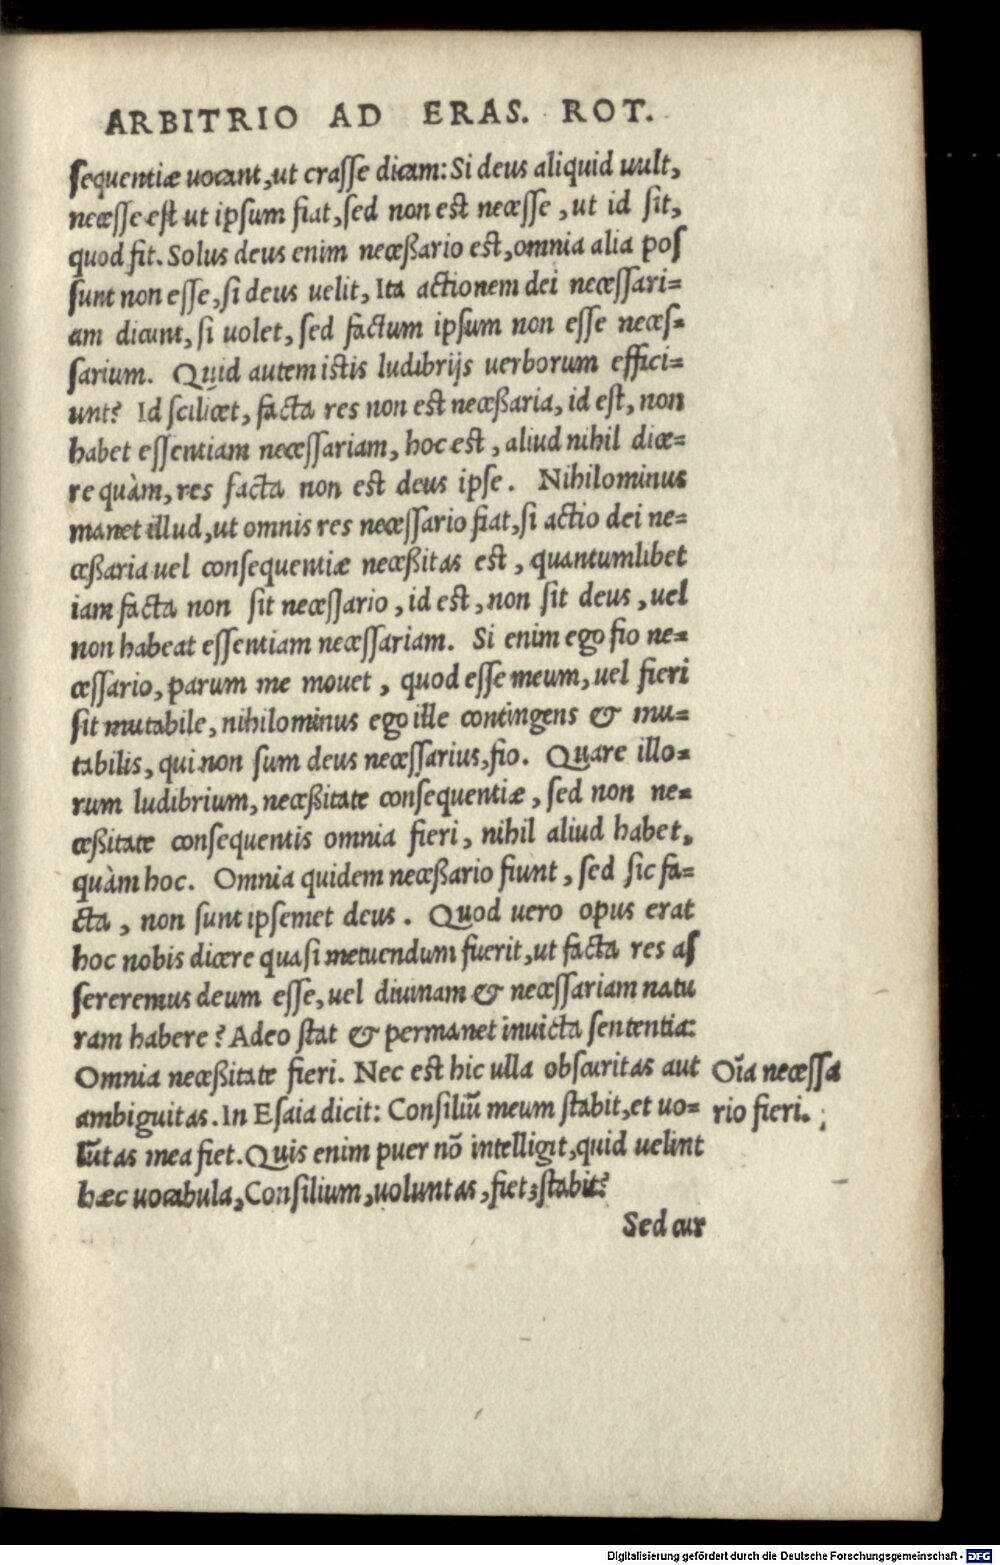 ARBITRIO AD ERAS. ROT.
sequentiæ uocant, ut crasse dicam: Si deus aliquid uult,
necesse est ut ipsum fiat, sed non est necesse, ut id sit,
quod fit. Solus deus enim neceßario est, omnia alia pos
sunt non esse, si deus uelit, Ita actionem dei necessari=
am dicunt, si uolet, sed factum ipsum non esse neces=
sarium. Quid autem istis ludibrijs uerborum effici=
unt? Id scilicet, facta res non est neceßaria, id est, non
habet essentiam necessariam, hoc est, aliud nihil dice=
re quàm, res facta non est deus ipse. Nihilominus
manet illud, ut omnis res necessario fiat, si actio dei ne=
ceßaria uel consequentiæ neceßitas est, quantumlibet
iam facta non sit necessario, id est, non sit deus, uel
non habeat essentiam necessariam. Si enim ego fio ne=
cessario, parum me mouet, quod esse meum, uel fieri
sit mutabile, nihilominus ego ille contingens & mu=
tabilis, qui non sum deus necessarius, fio. Quare illo=
rum ludibrium, neceßitate consequentiæ, sed non ne=
ceßitate consequentis omnia fieri, nihil aliud habet,
quàm hoc. Omnia quidem neceßario fiunt, sed sic fa=
cta, non sunt ipsemet deus. Quod uero opus erat
hoc nobis dicere quasi metuendum fuerit, ut facta res as
sereremus deum esse, uel diuinam & necessariam natu
ram habere? Adeo stat & permanet inuicta sententia:
Omnia neceßitate fieri. Nec est hic ulla obscuritas aut
ambiguitas. In Esaia dicit: Consiliū meum stabit, et uo=
lūtas mea fiet. Quis enim puer nō intelligit, quid uelint
hæc uocabula, Consilium, uoluntas, fiet, stabit?
Sed cur
Oīa necessa
rio fieri.
Digitalisierung gefördert durch die Deutsche Forschungsgemeinschaft - DFG